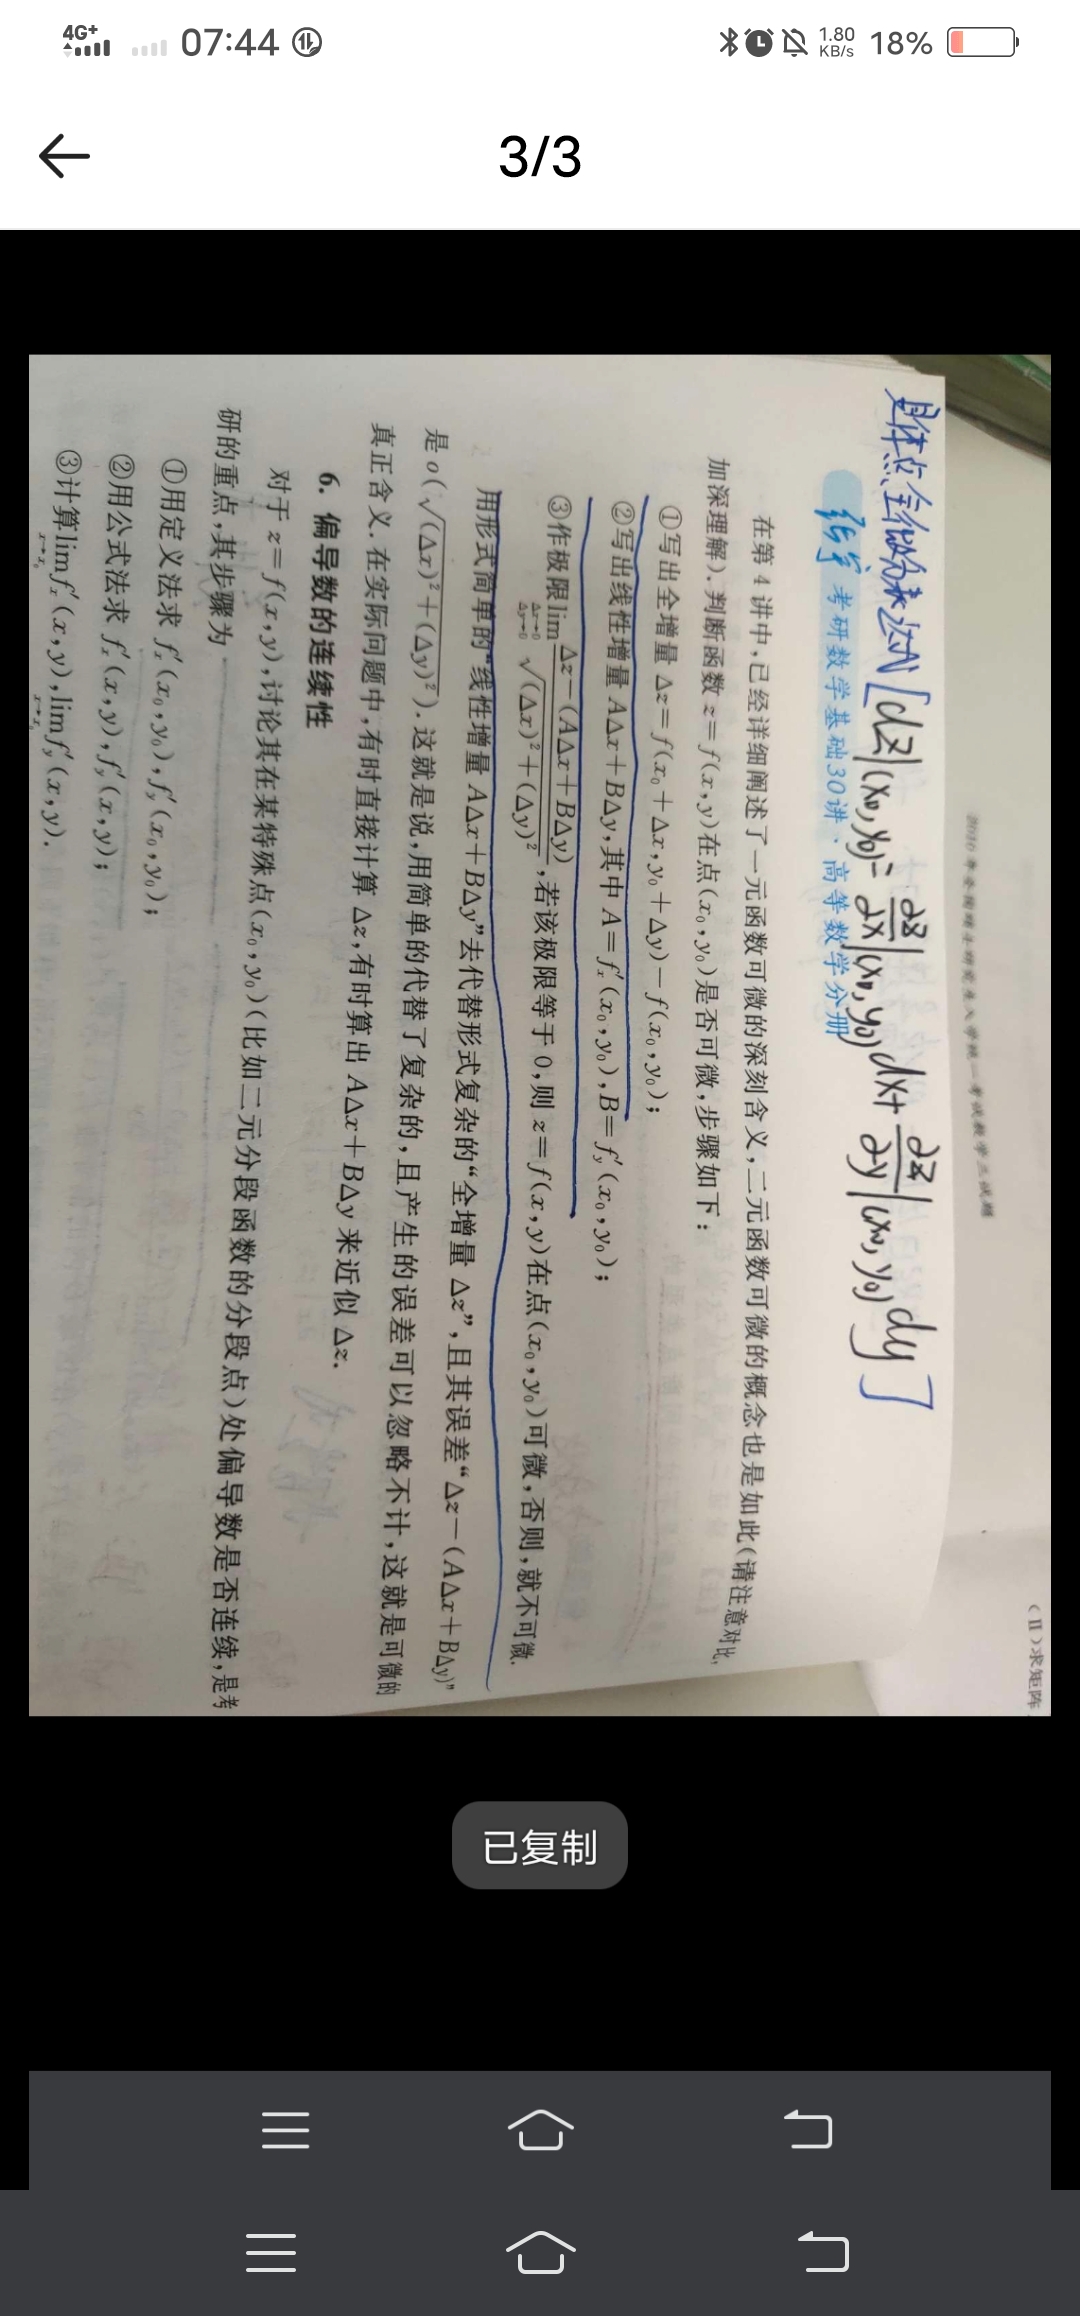 4G+ 07:44 1.80 KB/s 18%
3/3
(Ⅱ)求矩阵
具体点全微分表达式[dz|(x₀,y₀)=∂z/∂x|(x₀,y₀)dx+∂z/∂y|(x₀,y₀)dy]
考研数学基础30讲·高等数学分册
在第4讲中,已经详细阐述了一元函数可微的深刻含义,二元函数可微的概念也是如此(请注意对比,
加深理解).判断函数z=f(x,y)在点(x₀,y₀)是否可微,步骤如下:
①写出全增量Δz=f(x₀+Δx,y₀+Δy)-f(x₀,y₀);
②写出线性增量AΔx+BΔy,其中A=f′ₓ(x₀,y₀),B=f′ᵧ(x₀,y₀);
③作极限lim Δx→0 Δy→0 (Δz-(AΔx+BΔy))/√((Δx)²+(Δy)²),若该极限等于0,则z=f(x,y)在点(x₀,y₀)可微,否则,就不可微.
用形式简单的“线性增量AΔx+BΔy”去代替形式复杂的“全增量Δz”,且其误差“Δz-(AΔx+BΔy)”
是o(√((Δx)²+(Δy)²)).这就是说,用简单的代替了复杂的,且产生的误差可以忽略不计,这就是可微的
真正含义.在实际问题中,有时直接计算Δz,有时算出AΔx+BΔy来近似Δz.
6. 偏导数的连续性
对于z=f(x,y),讨论其在某特殊点(x₀,y₀)(比如二元分段函数的分段点)处偏导数是否连续,是考
研的重点,其步骤为
①用定义法求f′ₓ(x₀,y₀),f′ᵧ(x₀,y₀);
②用公式法求f′ₓ(x,y),f′ᵧ(x,y);
③计算lim x→x₀ f′ₓ(x,y),lim x→x₀ f′ᵧ(x,y).
已复制